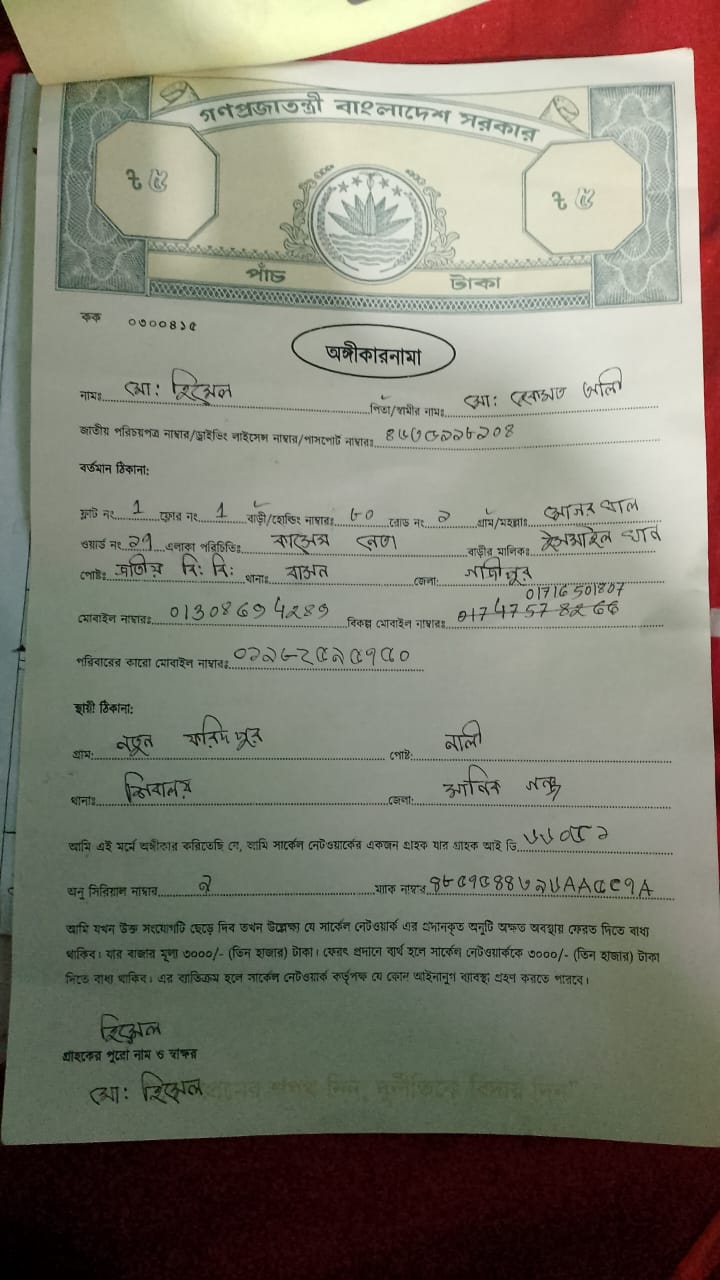 গণপ্রজাতন্ত্রী বাংলাদেশ সরকার
৳ ৫ ৳ ৫
পাঁচ টাকা
কক ০৩০০৪১৫
অঙ্গীকারনামা
নামঃ মো: হিমেল পিতা/স্বামীর নামঃ মো: আলী
জাতীয় পরিচয়পত্র নাম্বার/ড্রাইভিং লাইসেন্স নাম্বার/পাসপোর্ট নাম্বারঃ
বর্তমান ঠিকানা:
ফ্লাট নং 1 ফ্লোর নং 1 বাড়ী/হোল্ডিং নাম্বারঃ ৬০ রোড নং ২ গ্রাম/মহল্লাঃ
ওয়ার্ড নং ১৭ এলাকা পরিচিতিঃ বাড়ীর মালিকঃ ইসমাইল খান
পোষ্টঃ জাতীয় বি: বি: থানাঃ বাসন জেলা: গাজীপুর
01716501807
মোবাইল নাম্বারঃ 01308694289 বিকল্প মোবাইল নাম্বারঃ
পরিবারের কারো মোবাইল নাম্বারঃ
স্থায়ী ঠিকানা:
গ্রাম: নতুন ফরিদপুর পোষ্ট: নালী
থানাঃ শিবালয় জেলা: মানিকগঞ্জ
আমি এই মর্মে অঙ্গীকার করিতেছি যে, আমি সার্কেল নেটওয়ার্কের একজন গ্রাহক যার গ্রাহক আই ডি
অনু সিরিয়াল নাম্বার ম্যাক নাম্বার
আমি যখন উক্ত সংযোগটি ছেড়ে দিব তখন উল্লেক্ষ্য যে সার্কেল নেটওয়ার্ক এর প্রদানকৃত অনুটি অক্ষত অবস্থায় ফেরত দিতে বাধ্য
থাকিব। যার বাজার মূল্য ৩০০০/- (তিন হাজার) টাকা। ফেরৎ প্রদানে ব্যর্থ হলে সার্কেল নেটওয়ার্ককে ৩০০০/- (তিন হাজার) টাকা
দিতে বাধ্য থাকিব। এর ব্যতিক্রম হলে সার্কেল নেটওয়ার্ক কর্তৃপক্ষ যে কোন আইনানুগ ব্যাবস্থা গ্রহণ করতে পারবে।
হিমেল
গ্রাহকের পুরো নাম ও স্বাক্ষর
মো: হিমেল
শপথ নিন, দুর্নীতিকে বিদায় দিন"